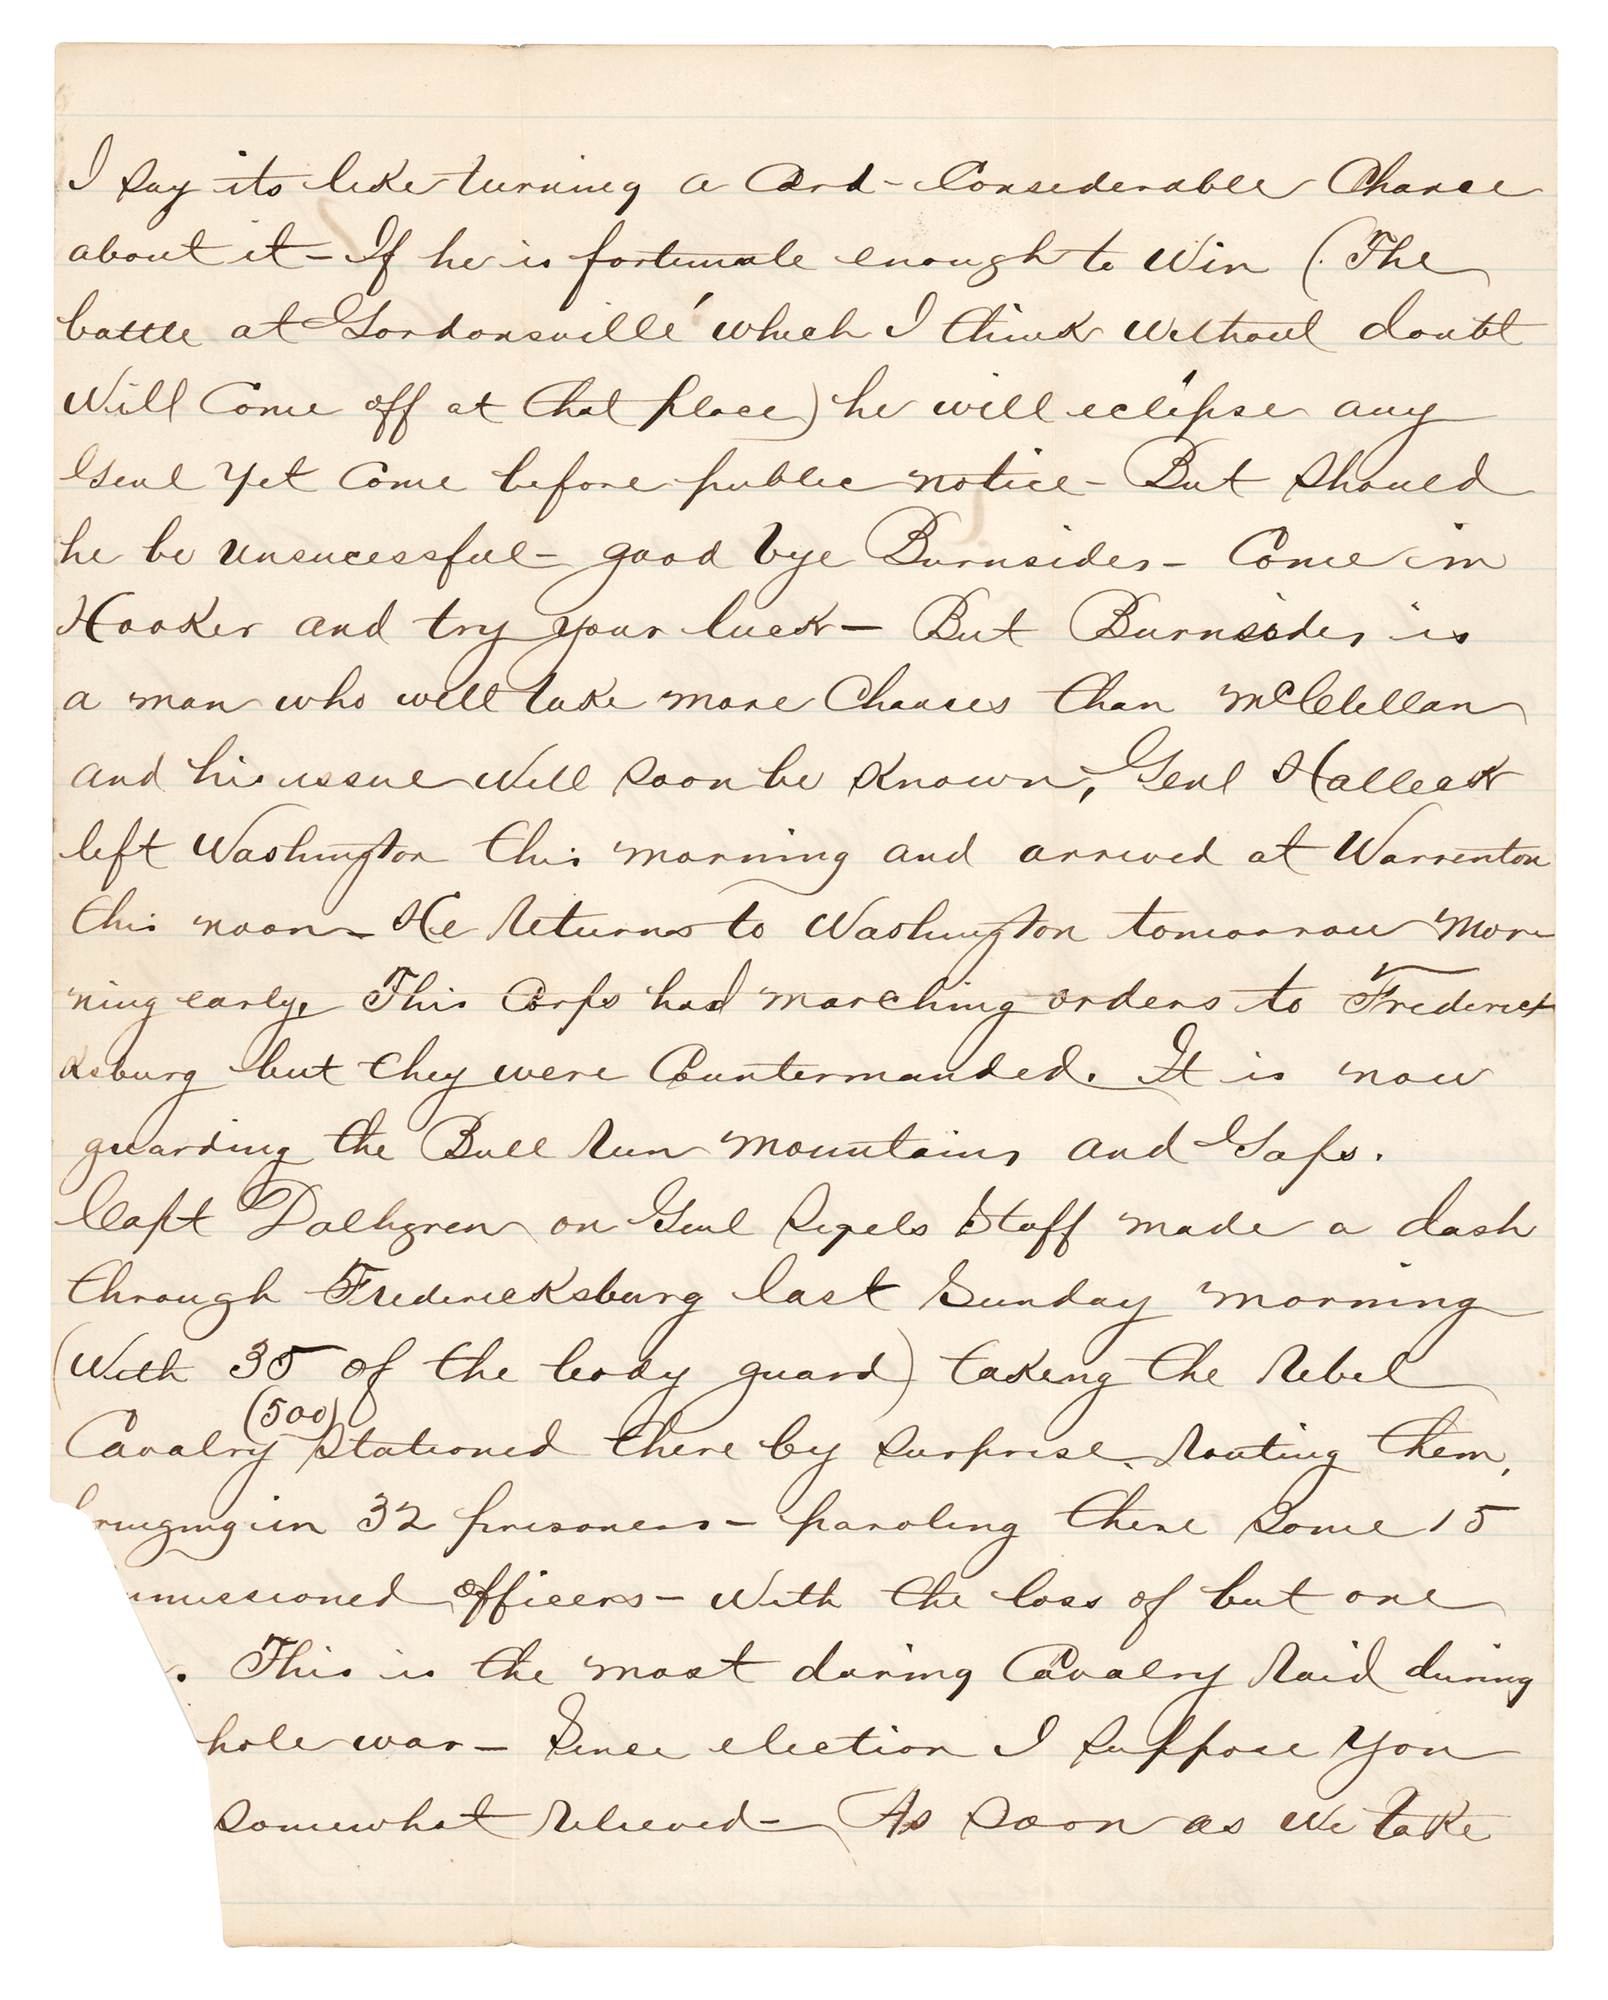 I say its like turning a Card - Considerable Chance
about it - If he is fortunate enough to Win (The
battle at Gordonsville' which I think without doubt
Will Come off at that place) he will eclipse any
Genl Yet Come before public notice - But should
he be unsucessful - good bye Burnsides - Come in
Hooker and try your luck - But Burnsides is
a man who will take more Chances than McClellan
and his issue Will soon be Known, Genl Halleck
left Washington this morning and arrived at Warrenton
this noon - He returns to Washington tomorrow Mor
ning early. This Corps had marching orders to Frederick
ksburg but they were Countermanded. It is now
guarding the Bull Run Mountains and Gaps.
Capt Dalhgren on Genl Sigels Staff made a dash
through Fredericksburg last Sunday morning
(With 35 of the body guard) taking the Rebel
(500)
Cavalry stationed there by surprise. Routing them,
bringing in 32 prisoners - paroling there some 15
mmissioned officers - With the loss of but one
. This is the most daring Cavalry Raid during
hole war - Since election I suppose You
somewhat relieved - As soon as We take